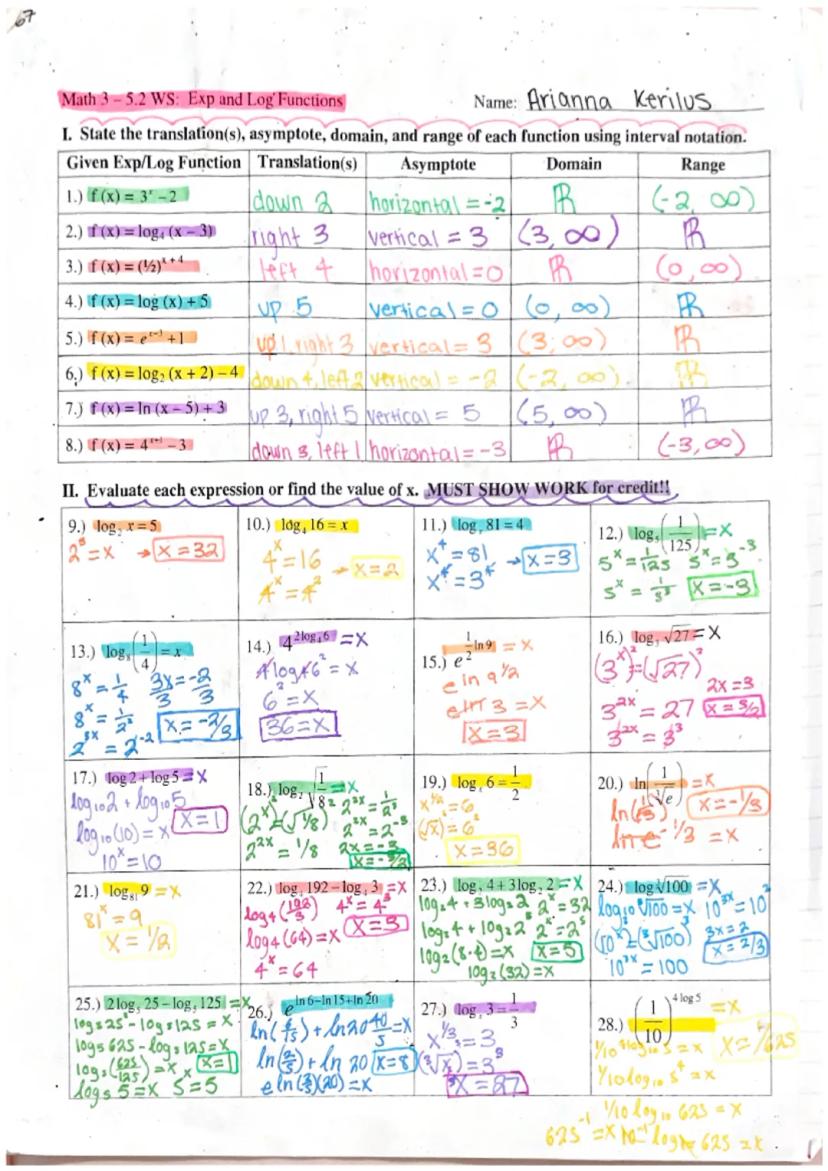 67
Math 3 – 5.2 WS: Exp and Log Functions Name: Arianna Kerilus
I. State the translation(s), asymptote, domain, and range of each function using interval notation.
Given Exp/Log Function Translation(s) Asymptote Domain Range
1.) f (x) = 3ˣ – 2 down 2 horizontal = -2 ℝ (-2, ∞)
2.) f (x) = log₄ (x – 3) right 3 vertical = 3 (3, ∞) ℝ
3.) f (x) = (½)ˣ⁺⁴ left 4 horizontal = 0 ℝ (0, ∞)
4.) f (x) = log (x) + 5 up 5 vertical = 0 (0, ∞) ℝ
5.) f (x) = e + 1 up 1, right 3 vertical = 3 (3, ∞) ℝ
6.) f (x) = log₂ (x + 2) – 4 down 4, left 2 vertical = -2 (-2, ∞) ℝ
7.) f (x) = ln (x – 5) + 3 up 3, right 5 vertical = 5 (5, ∞) ℝ
8.) f (x) = 4ˣ⁺¹ – 3 down 3, left 1 horizontal = -3 ℝ (-3, ∞)
II. Evaluate each expression or find the value of x. MUST SHOW WORK for credit!!
9.) log₂ x = 5
2⁵ = x → x = 32
10.) log₄ 16 = x
4ˣ = 16
→ x = 2
4ˣ = 4²
11.) logₓ 81 = 4
x⁴ = 81
→ x = 3
x⁴ = 3⁴
12.) log₅ (1/125) = x
5ˣ = 1/125 5ˣ = 5⁻³
5ˣ = 1/5³ x = -3
13.) log₈ (1/4) = x
8ˣ = 1/4 3x/3 = -2/3
8ˣ = 1/2² x = -2/3
2³ˣ = 2⁻²
14.) 4^(2log₄6) = x
4log₄6² = x
6² = x
36 = x
15.) e^(½ ln 9) = x
e ln 9^½
e ln 3 = x
x = 3
16.) log₃ √27 = x
(3ˣ)² = (√27)²
2x = 3
3²ˣ = 27 x = 3/2
3²ˣ = 3³
17.) log 2 + log 5 = x
log₁₀2 + log₁₀5
log₁₀(10) = x x = 1
10ˣ = 10
18.) log₂ √(1/8) = x
(2ˣ)² = (√1/8)² 2²ˣ = 1/2³
2²ˣ = 2⁻³
2²ˣ = 1/8 2x = -3
x = -3/2
19.) logₓ 6 = 1/2
x^(1/2) = 6
(√x)² = 6²
x = 36
20.) ln (1/∛e) = x
x = -1/3
ln e^(-1/3) = x
21.) log₈₁ 9 = x
81ˣ = 9
x = 1/2
22.) log₄ 192 – log₄ 3 = x
log₄(192/3) 4ˣ = 4³
log₄(64) = x x = 3
4ˣ = 64
23.) log₂ 4 + 3 log₂ 2 = x
log₂4 + 3log₂2 2ˣ = 32
log₂4 + log₂2³ 2ˣ = 2⁵
log₂(8·4) = x x = 5
log₂(32) = x
24.) log ∛100 = x
log₁₀ ∛100 = x 10³ˣ = 10²
(10ˣ)³ = (∛100)³ 3x = 2
x = 2/3
10³ˣ = 100
25.) 2 log₅ 25 – log₅ 125 = x
log₅25² - log₅125 = x
log₅625 - log₅125 = x
log₅(625/125) = x x = 1
log₅ 5 = x 5 = 5
26.) e^(ln 6 – ln 15 + ln 20)
ln(6/15) + ln20 40/5 = x
ln(2/5) + ln 20 x = 8
e ln(2/5)(20) = x
27.) logₓ 3 = 1/3
x^(1/3) = 3
(∛x)³ = 3³
x = 27
28.) (1/10)^(4 log 5) = x
1/10 4log₁₀5 = x x = 1/625
1/10 log₁₀ 5⁴ = x
1/10 log₁₀ 625 = x
625⁻¹ = x 10⁻¹ log₁₀ 625 = x